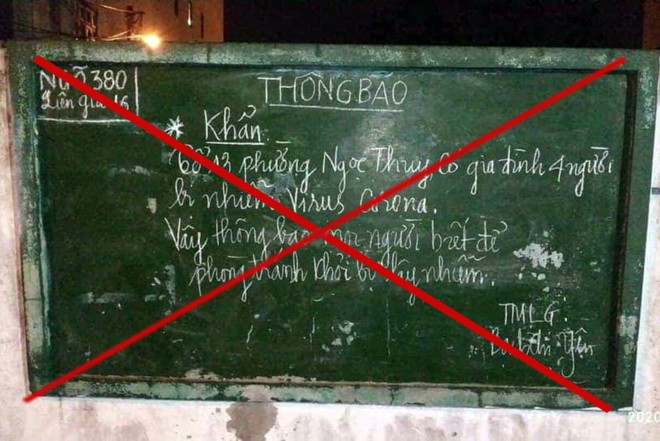 Ngõ 380
Liên gia 16
THÔNG BÁO
* Khẩn
Tổ 13 phường Ngọc Thụy, có gia đình 4 người
bị nhiễm Virus Corona.
Vậy thông báo mọi người biết để
phòng tránh khỏi bị lây nhiễm.
TMLG.
Yên
2020